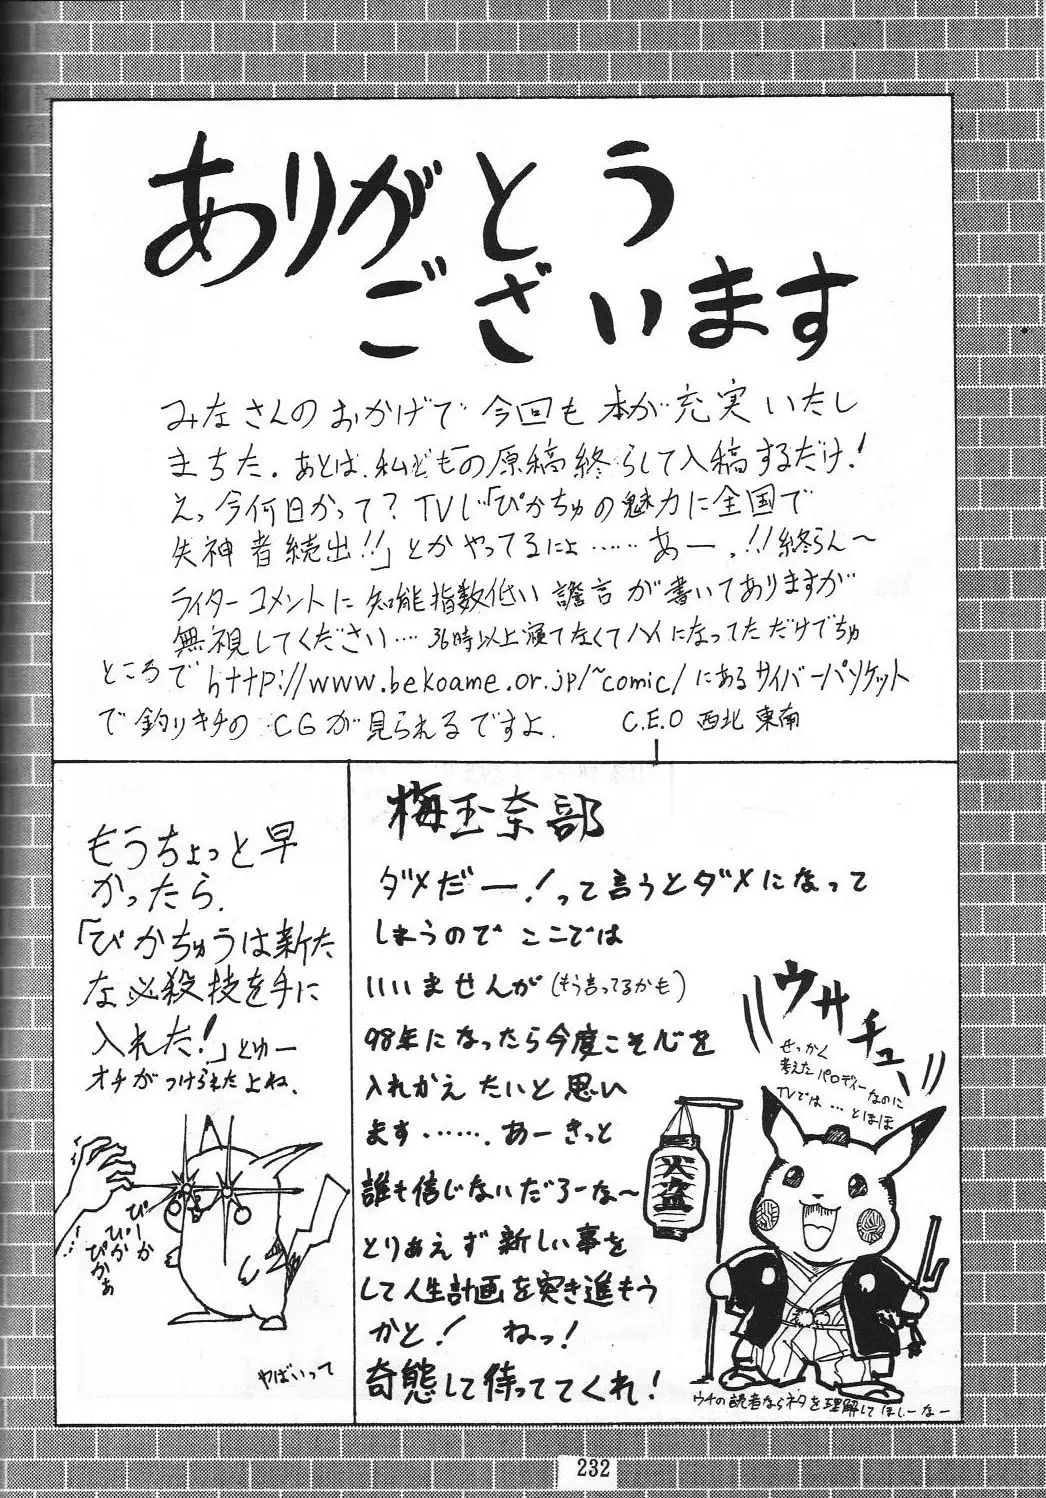 ありがとう
ございます
みなさんのおかげで今回も本が充実いたし
まちた。あとは、私どもの原稿終らして入稿するだけ!
えっ今何日かって? TVじ「ぴかちゅの魅力に全国で
失神者続出!!」とかやってるによ……あー、!!終らん～
ライターコメントに知能指数低い譫言が書いてありますが
無視してください…. 36時以上寝てなくてハイになってただけでちゅ
ところでhttp://www.bekoame.or.jp/~comic/にあるサイバーパソケット
で釣りキチのCGが見られるですよ.
C.E.O 西北 東南
もうちょっと早
かったら.
「ぴかちゅうは新た
な必殺技を手に
入れた!」とゆー
オチがつけられたよね.
ぴーか
ぴか
ぴかぁ
やばいって
梅玉奈部
ダメだー!って言うとダメになって
しまうのでここでは
いいませんが(もう言ってるかも)
98年になったら今度こそ心を
入れかえたいと思い
ます……. あーきっと
誰も信じないだろーな～
とりあえず新しい事を
して人生計画を突き進もう
かと! ねっ!
奇態して待っててくれ!
ウサチュー
せっかく
考えたパロディーなのに
TVでは…とほほ
火盗
ウチの読者ならネタを理解してほしーなー
232